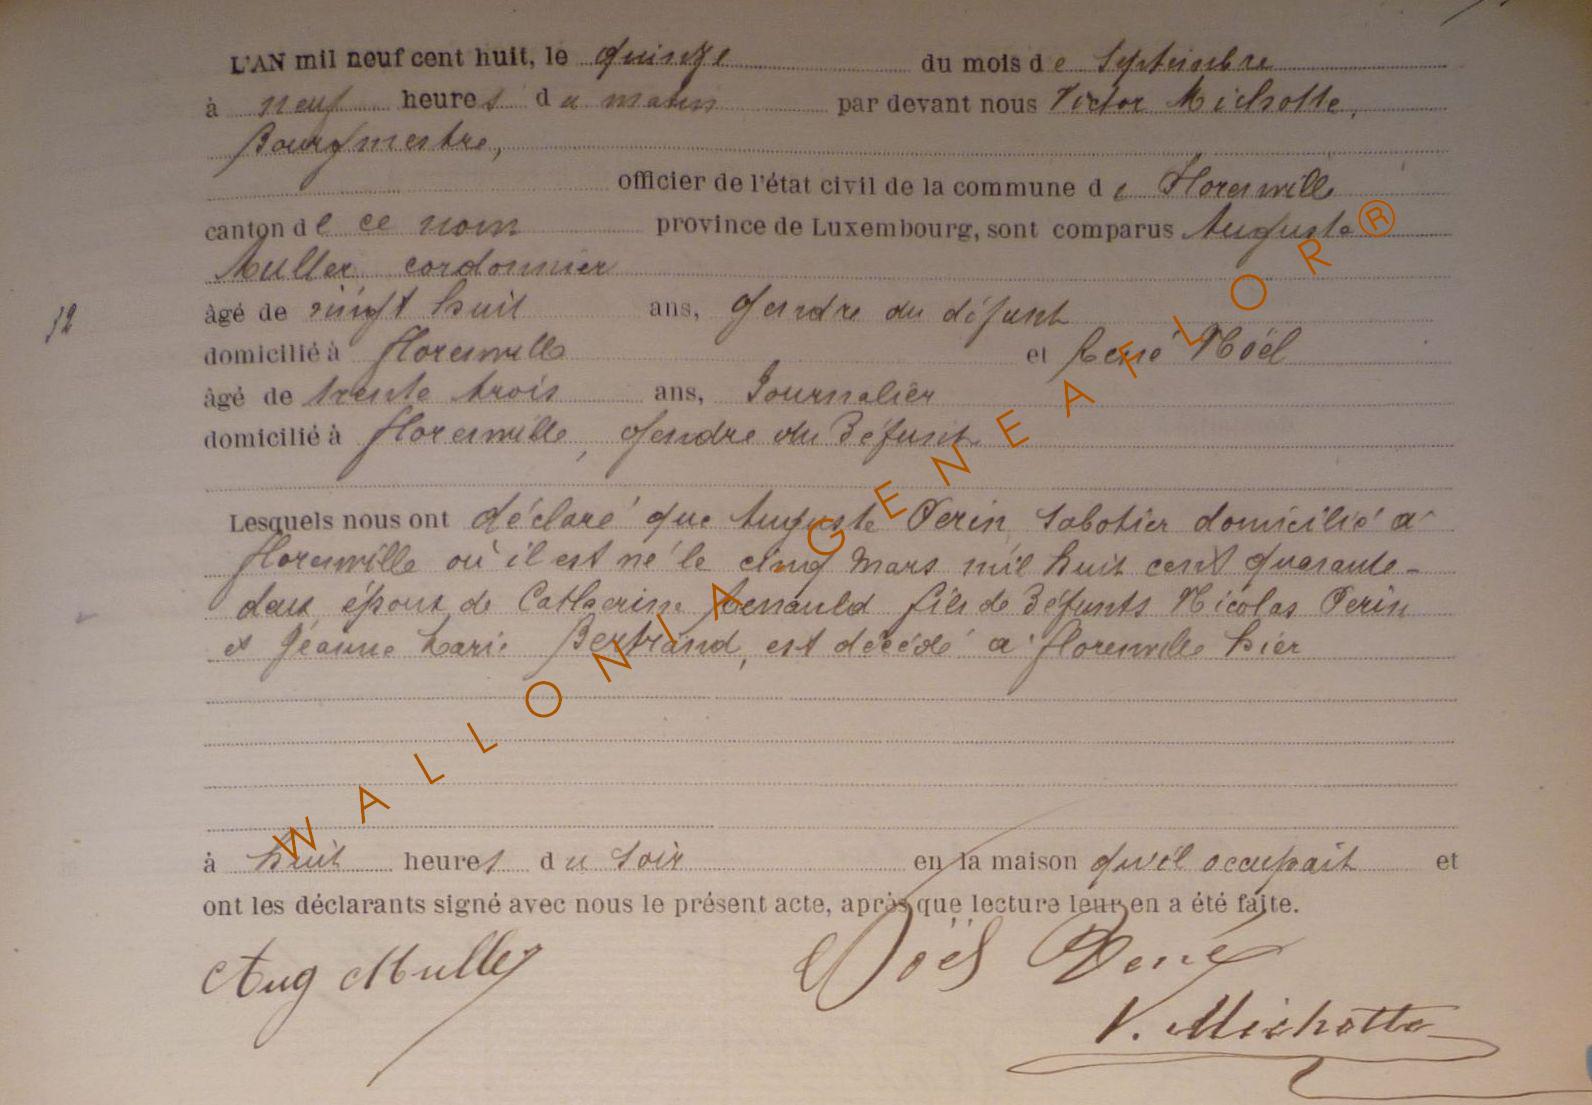 L'AN mil neuf cent huit, le quinze du mois de Septembre
à neuf heures du matin par devant nous Victor Michotte,
Bourgmestre,
officier de l'état civil de la commune de Florenville
canton de ce nom province de Luxembourg, sont comparus Auguste
Muller cordonnier
âgé de vingt huit ans, gendre du défunt
12
domicilié à Florenville et René Noël
âgé de trente trois ans, Journalier
domicilié à Florenville, gendre du Défunt
Lesquels nous ont déclaré que Auguste Perin, Sabotier domicilié à
Florenville où il est né le cinq Mars mil huit cent quarante-
deux époux de Catherine Renauld fils de Défunts Nicolas Perin
et Jeanne Marie Bertrand, est décédé à Florenville hier
à huit heures du soir en la maison qu'il occupait et
ont les déclarants signé avec nous le présent acte, après que lecture leur en a été faite.
Aug Muller Noël René
V. Michotte
WALLONIA-GENEAFLOR®